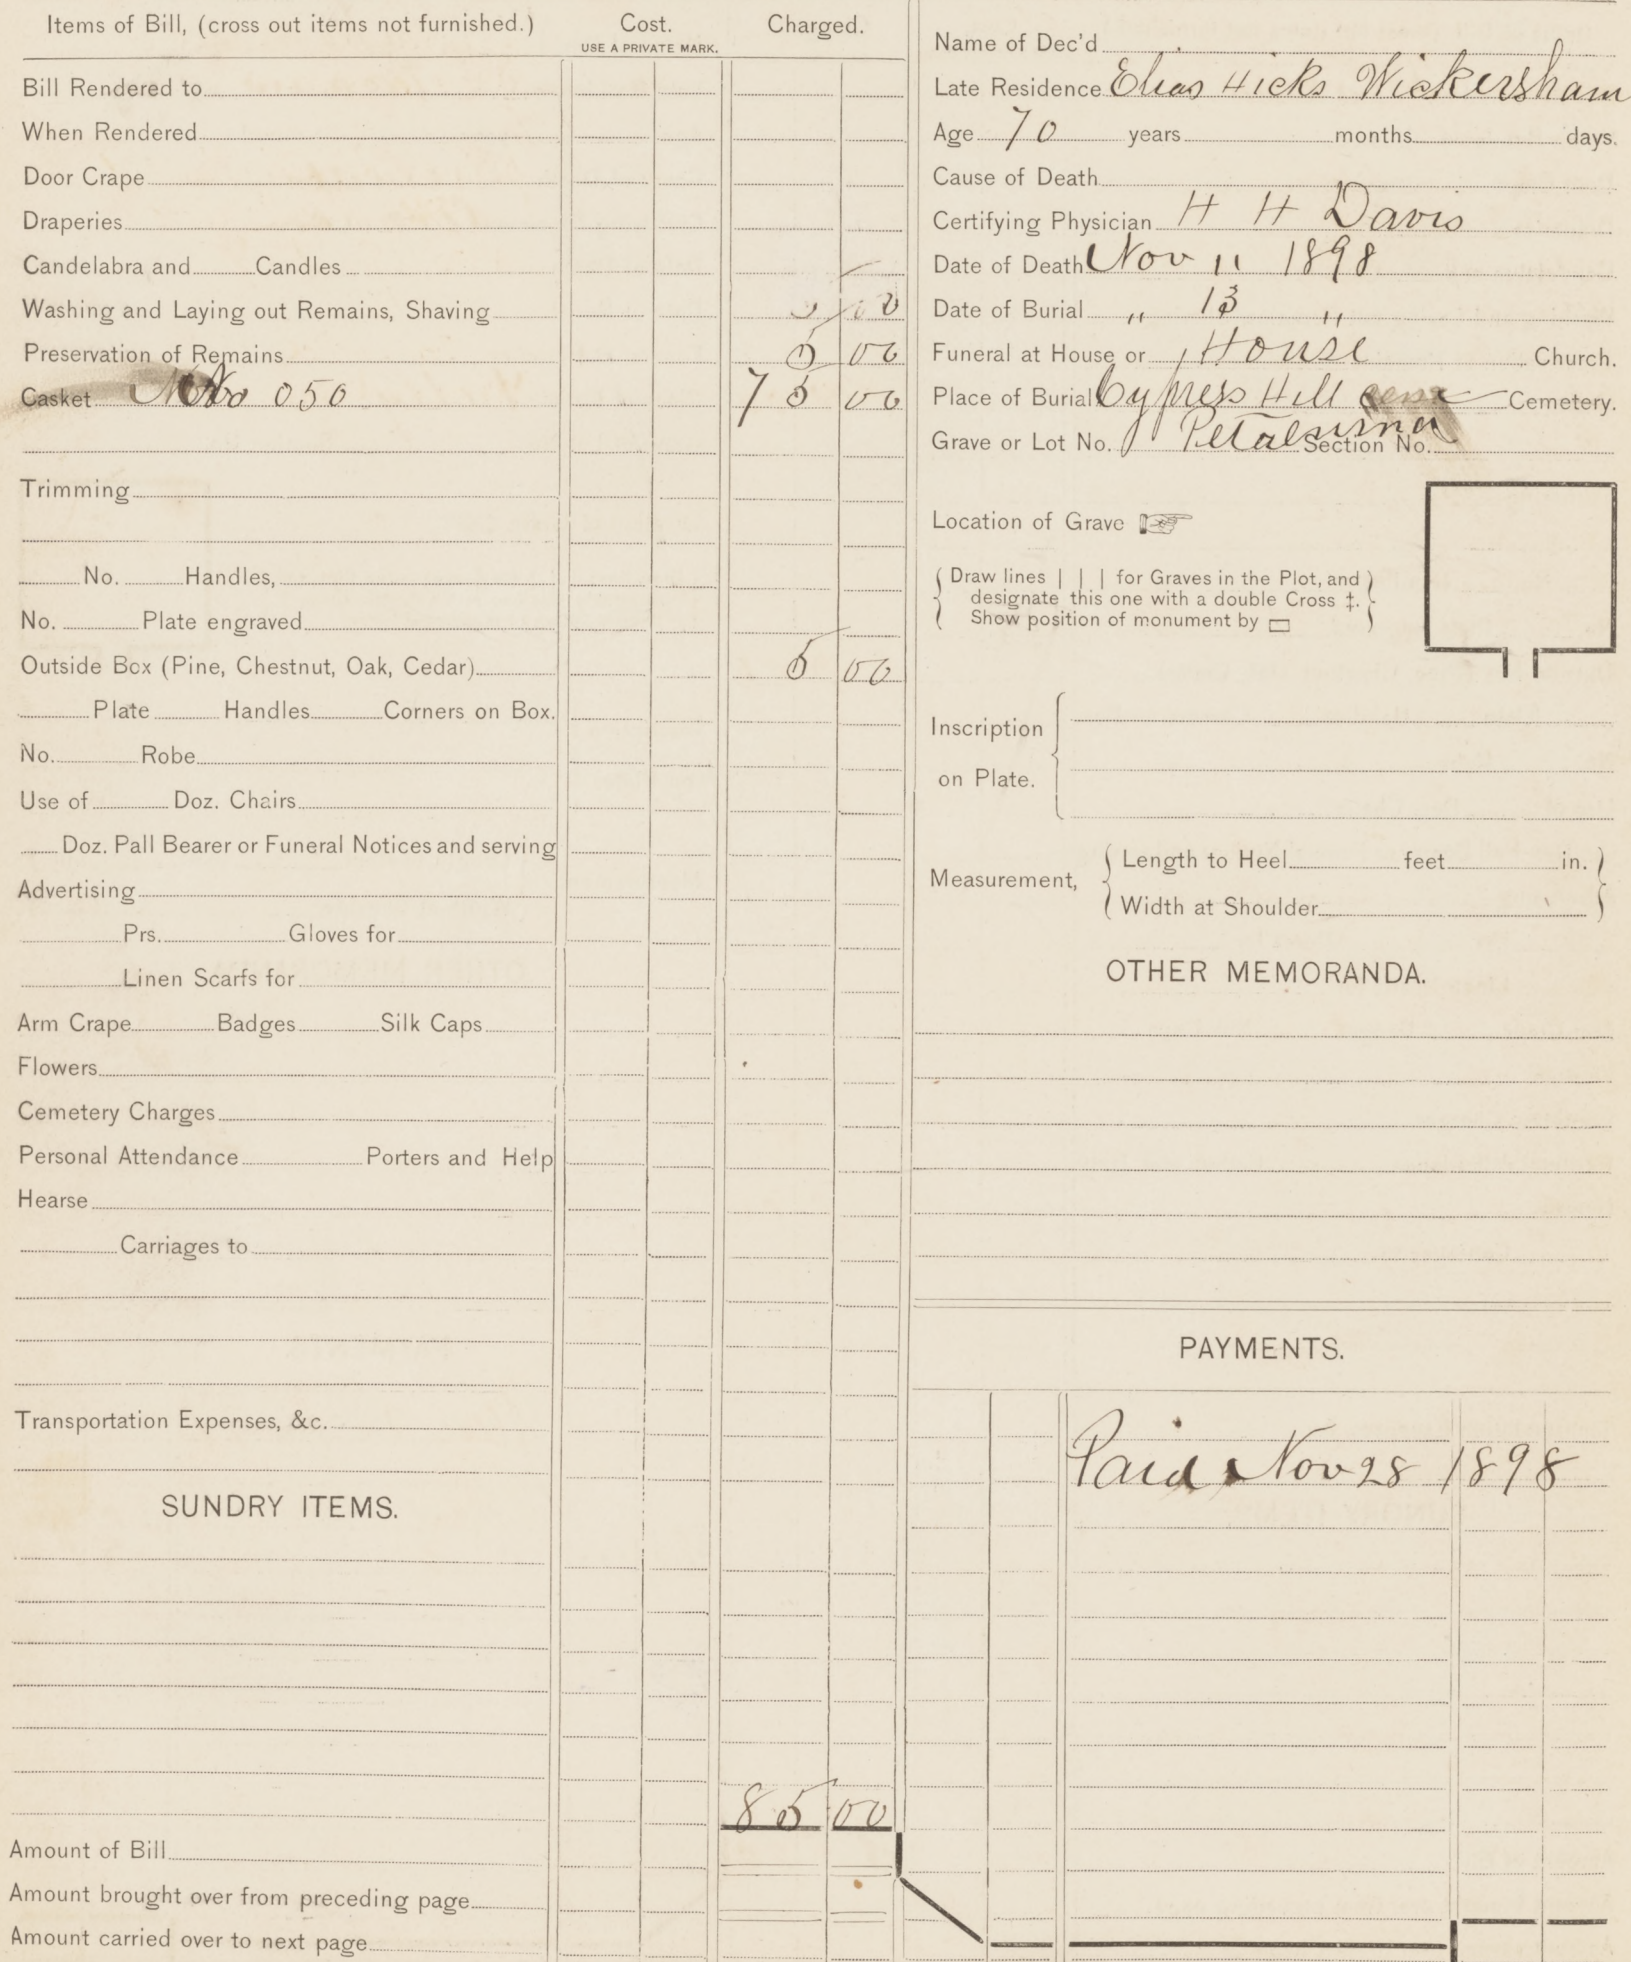 Items of Bill, (cross out items not furnished.) Cost. Charged.
USE A PRIVATE MARK.
Bill Rendered to
When Rendered
Door Crape
Draperies
Candelabra and Candles
Washing and Laying out Remains, Shaving
Preservation of Remains 5 00
Casket No 050 75 00
Trimming
No. Handles,
No. Plate engraved
Outside Box (Pine, Chestnut, Oak, Cedar) 5 00
Plate Handles Corners on Box.
No. Robe
Use of Doz. Chairs
Doz. Pall Bearer or Funeral Notices and serving
Advertising
Prs. Gloves for
Linen Scarfs for
Arm Crape Badges Silk Caps
Flowers
Cemetery Charges
Personal Attendance Porters and Help
Hearse
Carriages to
Transportation Expenses, &c.
SUNDRY ITEMS.
85 00
Amount of Bill
Amount brought over from preceding page
Amount carried over to next page
Name of Dec'd
Late Residence Elias Hicks Wickersham
Age 70 years months days.
Cause of Death
Certifying Physician H H Davis
Date of Death Nov 11 1898
Date of Burial " 13 "
Funeral at House or House Church.
Place of Burial Cypress Hill Cemetery.
Grave or Lot No. Petaluma Section No.
Location of Grave
Draw lines | | | for Graves in the Plot, and
designate this one with a double Cross ‡.
Show position of monument by ▭
Inscription
on Plate.
Measurement, Length to Heel feet in.
Width at Shoulder
OTHER MEMORANDA.
PAYMENTS.
Paid Nov 28 1898